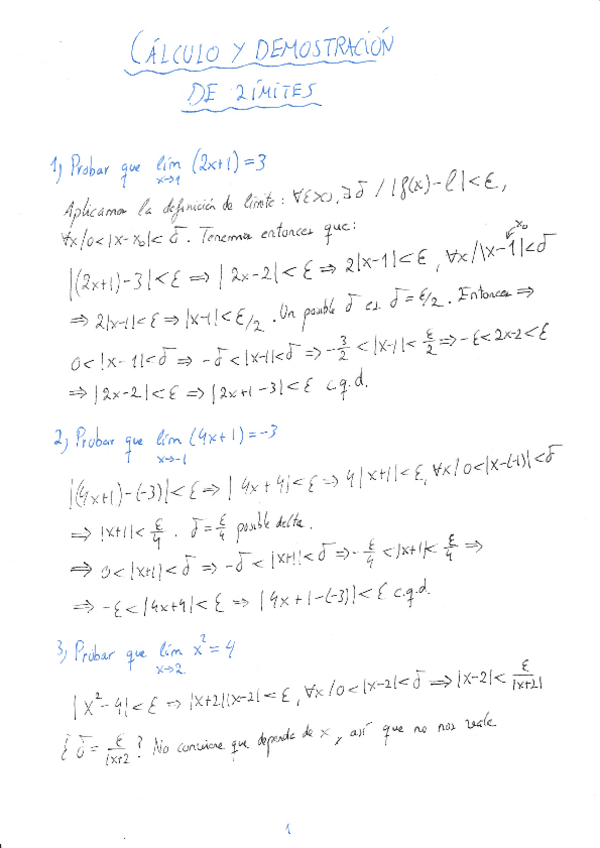 CÁLCULO Y DEMOSTRACIÓN
DE LÍMITES
1) Probar que lím (2x+1)=3
x→1
Aplicamos la definición de límite: ∀ε>0, ∃δ / |f(x)-l|<ε,
∀x/0<|x-x₀|<δ. Tenemos entonces que:
x₀
|(2x+1)-3|<ε ⇒ |2x-2|<ε ⇒ 2|x-1|<ε, ∀x/|x-1|<δ
⇒ 2|x-1|<ε ⇒ |x-1|<ε/2. Un posible δ es δ=ε/2. Entonces ⇒
0<|x-1|<δ ⇒ -δ<|x-1|<δ ⇒ -3/2<|x-1|<ε/2 ⇒ -ε<2x-2<ε
⇒ |2x-2|<ε ⇒ |2x+1-3|<ε c.q.d.
2) Probar que lím (4x+1)=-3
x→-1
|(4x+1)-(-3)|<ε ⇒ |4x+4|<ε ⇒ 4|x+1|<ε, ∀x/0<|x-(-1)|<δ
⇒ |x+1|<ε/4. δ=ε/4 posible delta.
⇒ 0<|x+1|<δ ⇒ -δ<|x+1|<δ ⇒ -ε/4<|x+1|<ε/4 ⇒
⇒ -ε<|4x+4|<ε ⇒ |4x+1-(-3)|<ε c.q.d.
3) Probar que lím x²=4
x→2
|x²-4|<ε ⇒ |x+2||x-2|<ε, ∀x/0<|x-2|<δ ⇒ |x-2|<ε/|x+2|
¿δ=ε/|x+2? No conviene que dependa de x, así que no nos vale
1